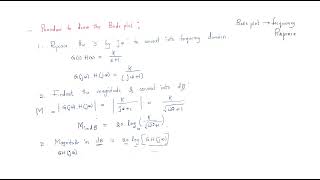 - Procedure to draw the Bode plot :
Bode plot → frequency
Response
1. Replace the s by jω to convert into frequency domain.
G(s) H(s) = K / s+1
G(jω) H(jω) = K / (jω+1)
2. Find out the magnitude & convert into dB
|M| = |G(jω) H(jω)| = | K / jω+1 | = K / √ω²+1
M in dB = 20 log
3. Magnitude in dB = 20 log [GH(jω)]
GH(jω)